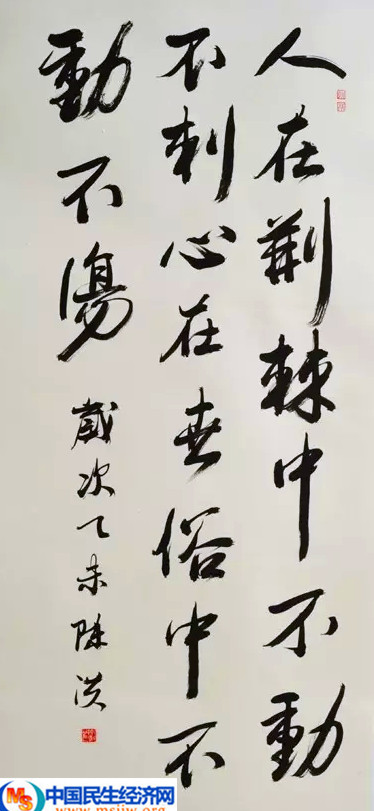 人在荆棘中不動
不刺心在世俗中不
動不傷
歲次乙未陳洪
中国民生经济网
www.msjjw.org